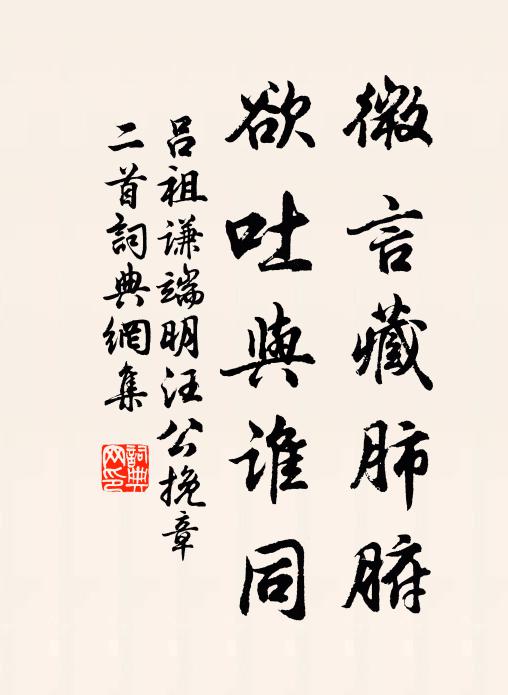 微言藏肺腑
欲吐與誰同
呂祖謙端明汪公挽章
二首詞典網集
詞典
网印